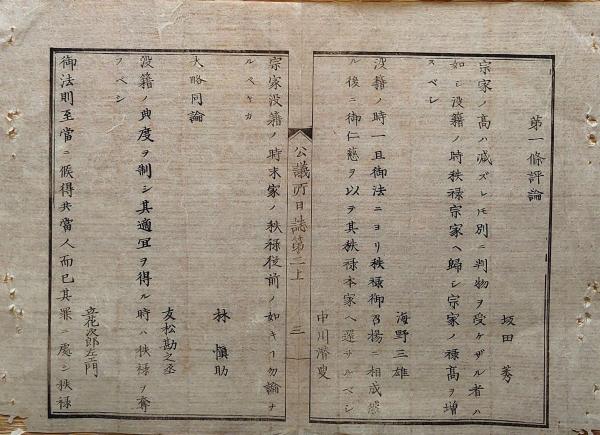 第一條評論
坂田莠
宗家ノ高ハ減ズレ𪜈別ニ判物ヲ受ケザル者ハ
如シ没籍ノ時秩禄宗家ヘ歸シ宗家ノ禄高ヲ増
スベシ
海野三雄
没籍ノ時一旦御法ニヨリ秩禄御召揚ニ相成然
ル後ニ御仁慈ヲ以ヲ其秩禄本家ヘ還サルベシ
中川濟
公議所日誌第二上
三
宗家没籍ノ時末家ノ秩禄従前ノ如キヿ勿論ナ
ルベキカ
林慎助
大略同論
友松勘之丞
没籍ノ典度ヲ制シ其適宜ヲ得ル時ハ秩禄ヲ奪
フベシ
立花次郎左エ門
御法則至當ニ候得共當人而已其罪ニ處シ秩禄